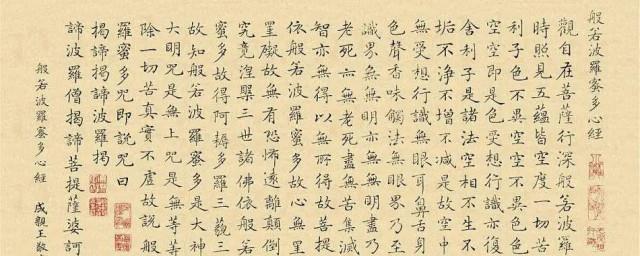 般若波羅蜜多心經
觀自在菩薩行深般若波羅
時照見五蘊皆空度一切苦
利子色不異空空不異色
空空即是色受想行識亦復
舍利子是諸法空相不生不
垢不淨不增不減是故空中
無受想行識無眼耳鼻舌身
色聲香味觸法無眼界乃至
識界無無明亦無無明盡乃
老死亦無老死盡無苦集滅
智亦無得以無所得故菩提
依般若波羅蜜多故心無罣
罣礙故無有恐怖遠離顛倒
究竟涅槃三世諸佛依般若
蜜多故得阿耨多羅三藐三
故知般若波羅蜜多是大神
大明咒是無上咒是無等等
除一切苦真實不虛故說般
羅蜜多咒即說咒曰
揭諦揭諦波羅揭
諦波羅僧揭諦菩提薩婆訶
般若波羅蜜多心經
成親王敬